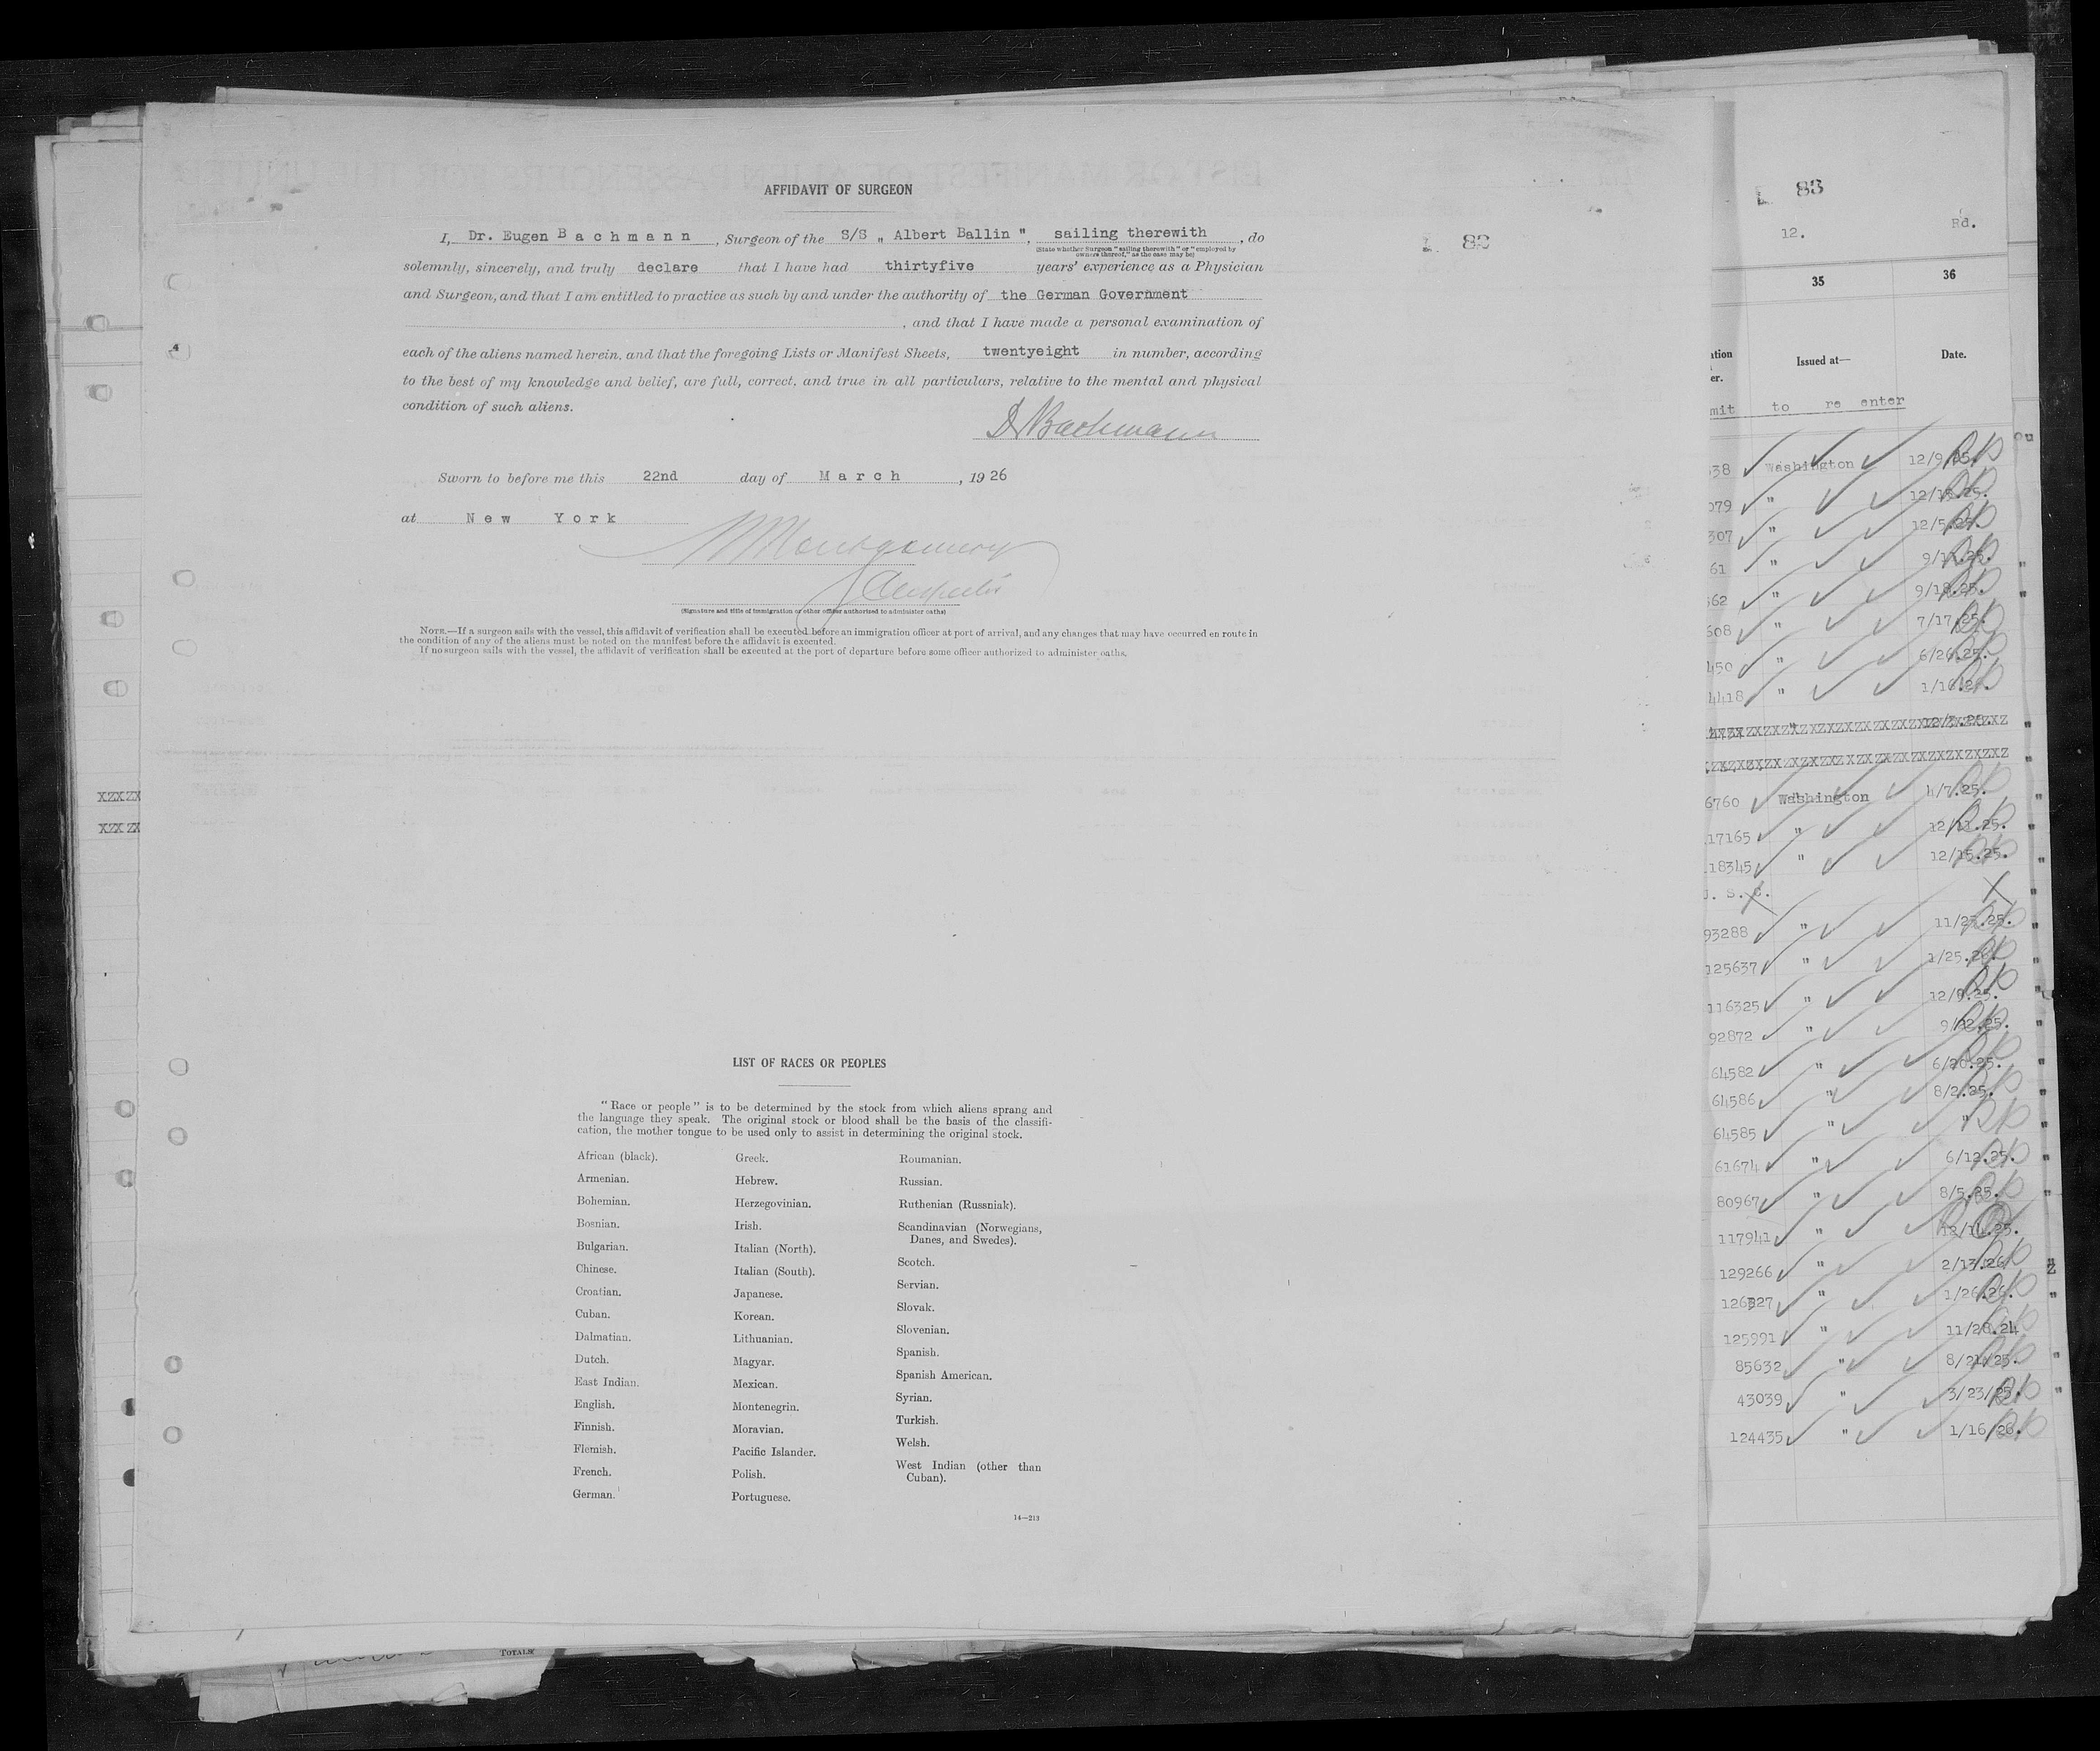 AFFIDAVIT OF SURGEON
I, Dr. Eugen B a c h m a n n , Surgeon of the S/S „ Albert Ballin ", sailing therewith , do
(State whether Surgeon "sailing therewith" or "employed by
owners thereof," as the case may be)
solemnly, sincerely, and truly declare that I have had thirtyfive years' experience as a Physician
and Surgeon, and that I am entitled to practice as such by and under the authority of the German Government
, and that I have made a personal examination of
each of the aliens named herein, and that the foregoing Lists or Manifest Sheets, twentyeight in number, according
to the best of my knowledge and belief, are full, correct, and true in all particulars, relative to the mental and physical
condition of such aliens.
Dr Bachmann
Sworn to before me this 22nd day of M a r c h , 19 26
at N e w Y o r k
Montgomery
(Signature and title of immigration or other officer authorized to administer oaths)
NOTE.—If a surgeon sails with the vessel, this affidavit of verification shall be executed before an immigration officer at port of arrival, and any changes that may have occurred en route in
the condition of any of the aliens must be noted on the manifest before the affidavit is executed.
If no surgeon sails with the vessel, the affidavit of verification shall be executed at the port of departure before some officer authorized to administer oaths.
82
LIST OF RACES OR PEOPLES
"Race or people" is to be determined by the stock from which aliens sprang and
the language they speak. The original stock or blood shall be the basis of the classifi-
cation, the mother tongue to be used only to assist in determining the original stock.
African (black).
Armenian.
Bohemian.
Bosnian.
Bulgarian.
Chinese.
Croatian.
Cuban.
Dalmatian.
Dutch.
East Indian.
English.
Finnish.
Flemish.
French.
German.
Greek.
Hebrew.
Herzegovinian.
Irish.
Italian (North).
Italian (South).
Japanese.
Korean.
Lithuanian.
Magyar.
Mexican.
Montenegrin.
Moravian.
Pacific Islander.
Polish.
Portuguese.
Roumanian.
Russian.
Ruthenian (Russniak).
Scandinavian (Norwegians,
Danes, and Swedes).
Scotch.
Servian.
Slovak.
Slovenian.
Spanish.
Spanish American.
Syrian.
Turkish.
Welsh.
West Indian (other than
Cuban).
14—213
TOTALS
83
12. Rd.
35 36
Issued at— Date.
mit to re enter
38 Washington
079 "
307 "
61 "
562 "
608 " 7/17.25.
450 " 6/26.25.
4418 "
6760 Washington 4/7.25.
17165 " 12/11.25.
18345 " 12/15.25.
93288 "
125637 "
116325 " 12/9.25.
92872 " 9/22.25.
64582 " 6/20.25.
64586 " 8/2.25.
64585 " "
61674 " 6/12.25.
80967 " 8/5.25.
117941 " 12/14.25.
129266 " 2/13.26
" 1/26.26.
125991 " 11/28.24
85632 " 8/21.25.
43039 " 3/23/25.
124435 " 1/16/26.